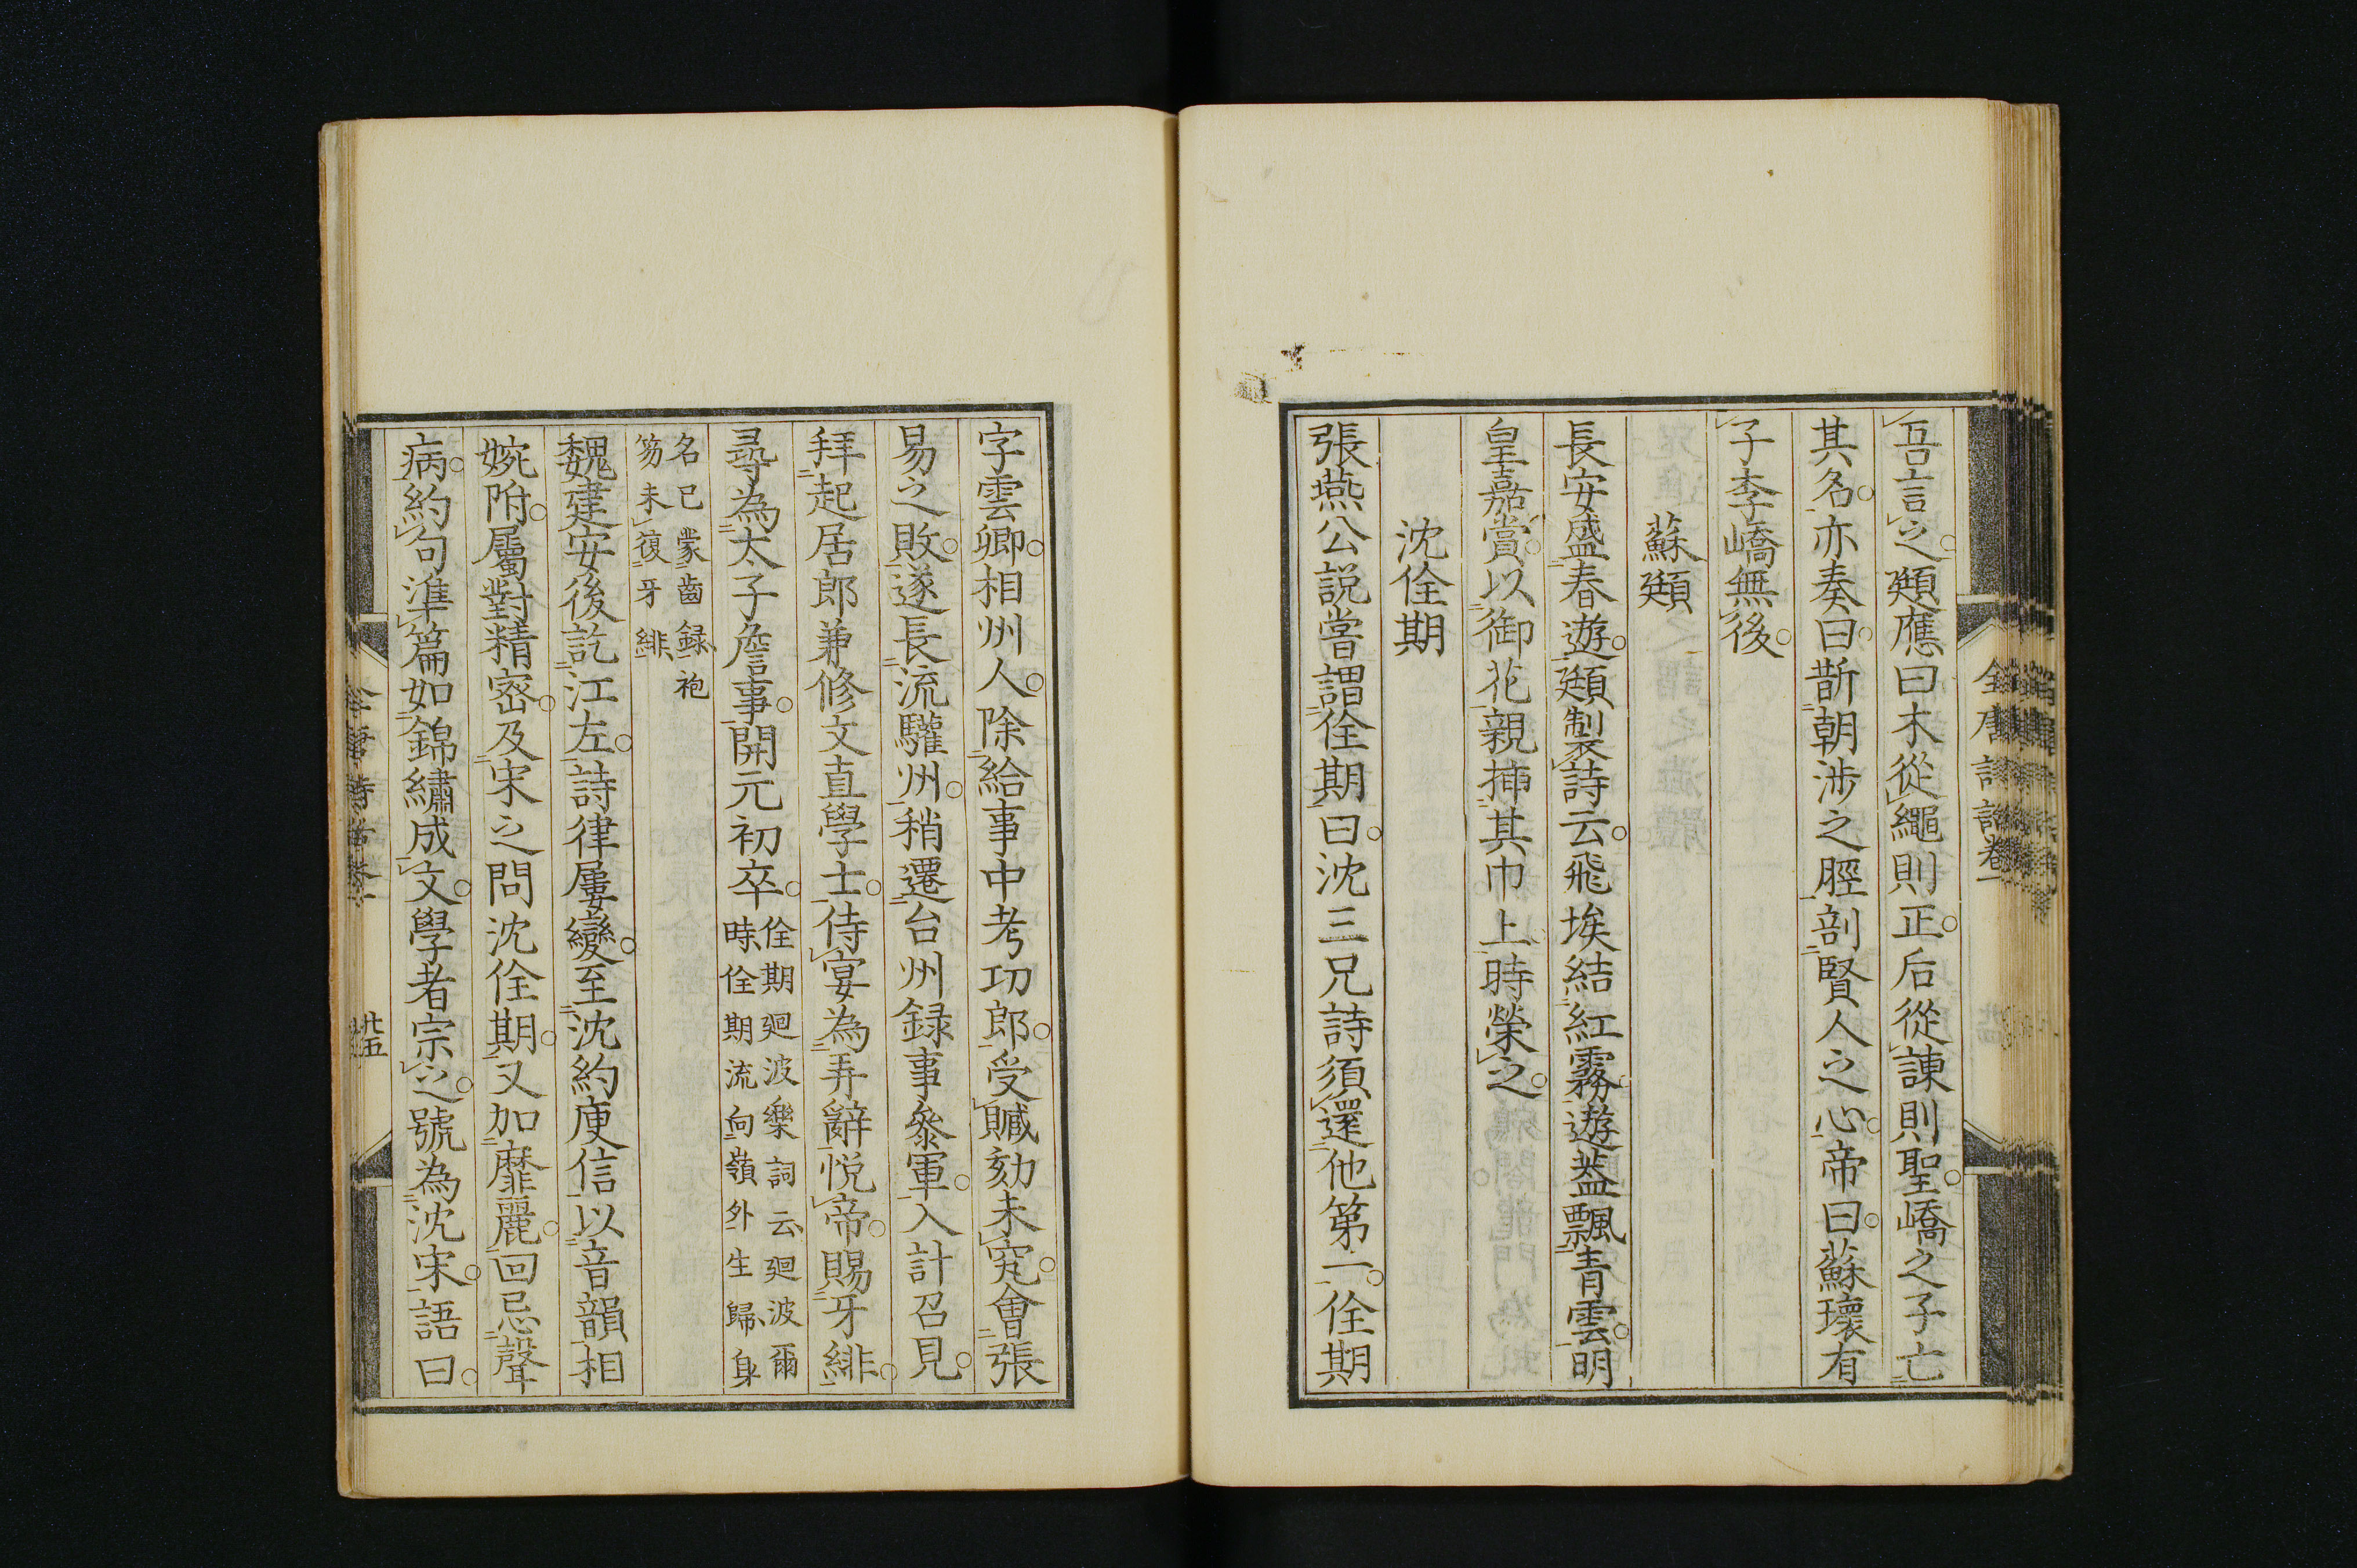 吾言之頲應曰木從繩則正后從諌則聖嶠之子亡
其名亦奏曰斮朝涉之脛剖賢人之心帝曰蘇瓌有
子李嶠無後
蘇頲
長安盛春遊頲製詩云飛埃結紅霧遊葢飄青雲明
皇嘉賞以御花親揷其巾上時榮之
沈佺期
張燕公說嘗謂佺期曰沈三兄詩須還他第一佺期
字雲卿相州人除給事中考功郎受贓劾未究會張
易之敗遂長流驩州稍遷台州録事參軍入計召見
拜起居郎兼修文直學士侍宴為弄辭悅帝賜牙緋
尋為太子詹事開元初卒
佺期廻波樂詞云廻波爾
時佺期流向嶺外生歸身
名已蒙齒録袍
笏未復牙緋
魏建安後訖江左詩律屢變至沈約庾信以音韻相
婉附屬對精密及宋之問沈佺期又加靡麗回忌聲
病約句準篇如錦繡成文學者宗之號為沈宋語曰
全唐詩話卷一
廿五